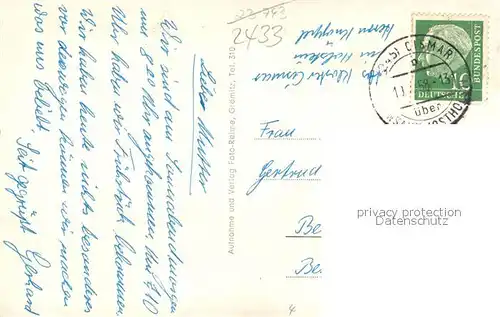 22 743
2433
Liebe Mutter
Wir sind am Sonnabendmorgen
um 8 20 Uhr angekommen. Um 7 10
Uhr haben wir Frühstück bekommen
Wir haben heute nichts besonderes
vor deswegen können wir machen
was uns beliebt. Seit gegrüßt Gerhard
Aufnahme und Verlag Foto-Rehme, Grömitz, Tel. 310
Kloster Cismar
Holstein
Herrn
CISMAR
über
DEUTSCHE BUNDESPOST
10
Frau
Gertrud
Be
Be
privacy protection
oldthing.de
4